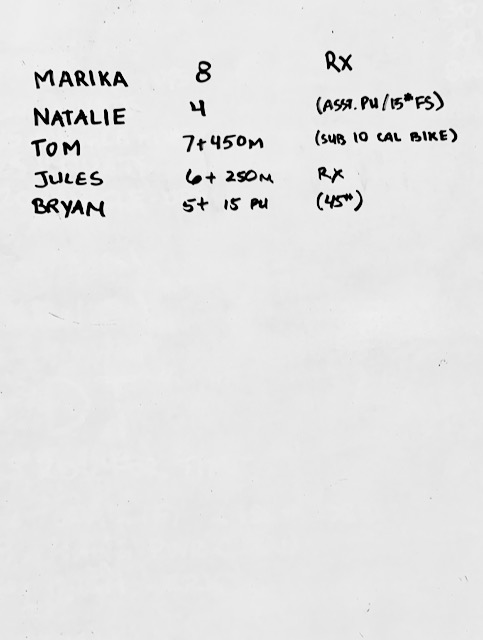 MARIKA 8 Rx
NATALIE 4 (ASST. PU/15# FS)
TOM 7+450M (SUB 10 CAL BIKE)
JULES 6+ 250M Rx
BRYAN 5+ 15 PU (45#)